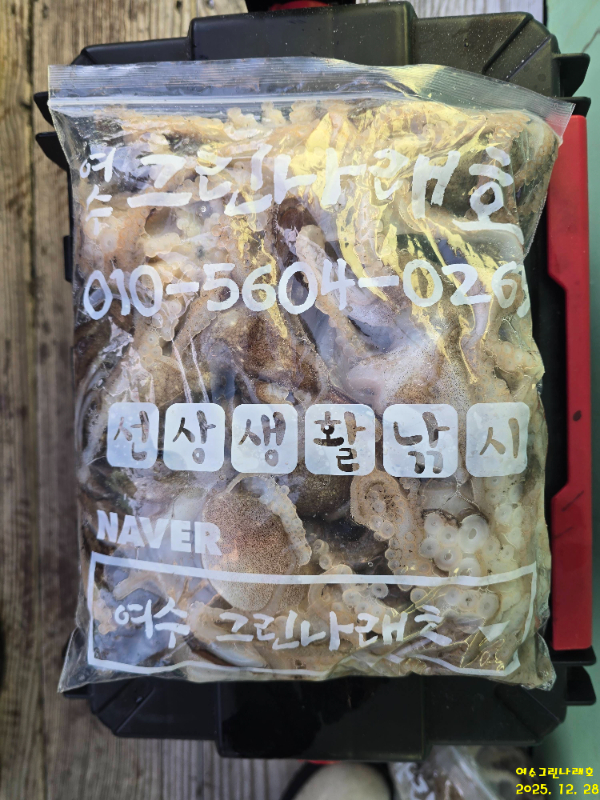 여수 그린나래호
010-5604-026
선상생활낚시
NAVER
여수 그린나래호
여수그린나래호
2025. 12. 28